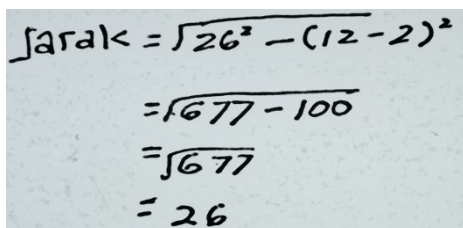 Jarak = √26² - (12-2)²
= √677 - 100
= √677
= 26